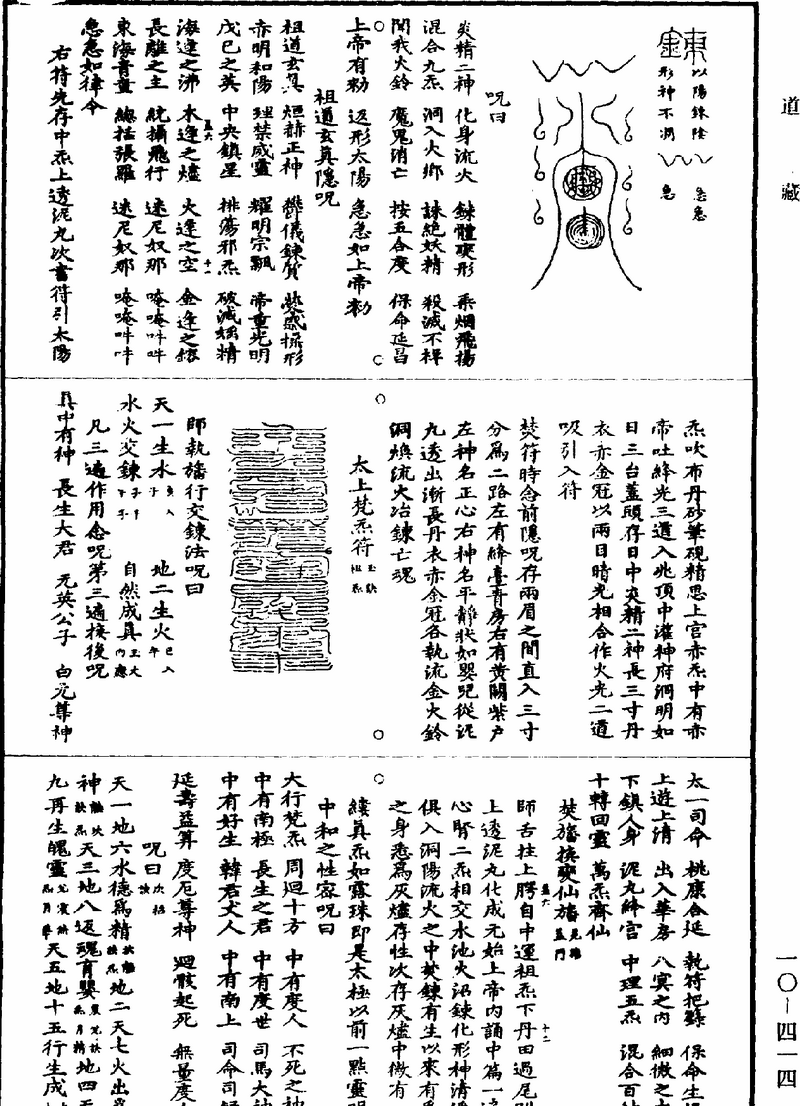 道藏
一〇-四一四
以陽鍊陰 急急
形神不凋 急
呪曰
炎精二神 化身流火 鍊體變形 乘烟飛揚
混合九炁 洞入火鄉 誅絕妖精 殺滅不祥
聞我火鈴 魔鬼消亡 按五合度 保命延昌
上帝有勑 返形太陽 急急如上帝勑
祖道玄真隱呪
祖道玄真 烜赫正神 鬱儀鍊質 熒惑攝形
赤明和陽 理禁威靈 耀明宗飄 帝重光明
戊己之英 中央鎮星 排蕩邪炁 破滅妖精
蓋六 十一
海逢之沸 水逢之爐 火逢之空 金逢之鎔
長離之主 統攝飛行 速尼奴那 唵唵吽吽
東海青童 總括張羅 速尼奴那 唵唵吽吽
急急如律令
右符先存中炁上透泥丸次書符引太陽
炁吹布丹砂筆硯精思上宮赤炁中有赤
帝吐絳光三道入兆頂中灌神府洞明如
日三台蓋頭存日中炎精二神長三寸丹
衣赤金冠以兩目睛光相合作火光二道
吸引入符
焚符時念前隱呪存兩眉之間直入三寸
分爲二路左有絳臺青房右有黃闕紫戶
左神名正心右神名平靜狀如嬰兒從泥
九透出漸長丹衣赤金冠各執流金火鈴
洞煥流火冶鍊亡魂
太上梵炁符 玉訣 祖炁
師執旛行交鍊法呪曰
天一生水 亥入子 地二生火 巳入午
水火交鍊 子午 午子 自然成真 玉文内應
凡三遍作用念呪第三遍接後呪
真中有神 長生大君 无英公子 白元尊神
太一司命 桃康合延 執符把籙 保命生
上遊上清 出入華房 八冥之内 細微之
下鎮人身 泥丸絳宮 中理五炁 混合百
十轉回靈 萬炁齊仙
焚旛換變仙旛
蓋六 十二
師舌拄上腭自中運祖炁下丹田過尾
上透泥丸化成元始上帝内誦中篇一
心腎二炁相交水池火沼鍊化形神清
俱入洞陽流火之中焚鍊有生以來有
之身悉爲灰燼存性次存灰燼中微有
縷真炁如露珠即是太極以前一點靈
中和之性密呪曰
大行梵炁 周迴十方 中有度人 不死之神
中有南極 長生之君 中有度世 司馬大神
中有好生 韓君丈人 中有南上 司命司
延壽益算 度厄尊神 迴骸起死 無量度
呪曰
天一地六水德爲精 地二天七火出爲
神 天三地八返魂育嬰 地四天
九再生魄靈 天五地十五行生成